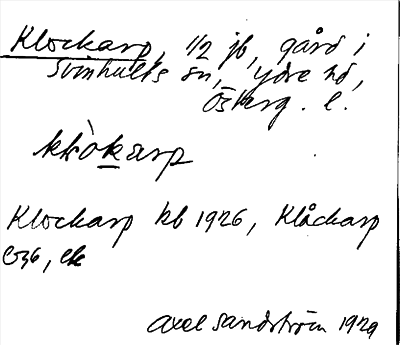 Klockarp, 1/2 jb, gård i
Svinhults sn, Ydre hd,
Österg. l.
klòkarp
Klockarp kb 1926, Klåckarp
ek
Axel Sandström 1929